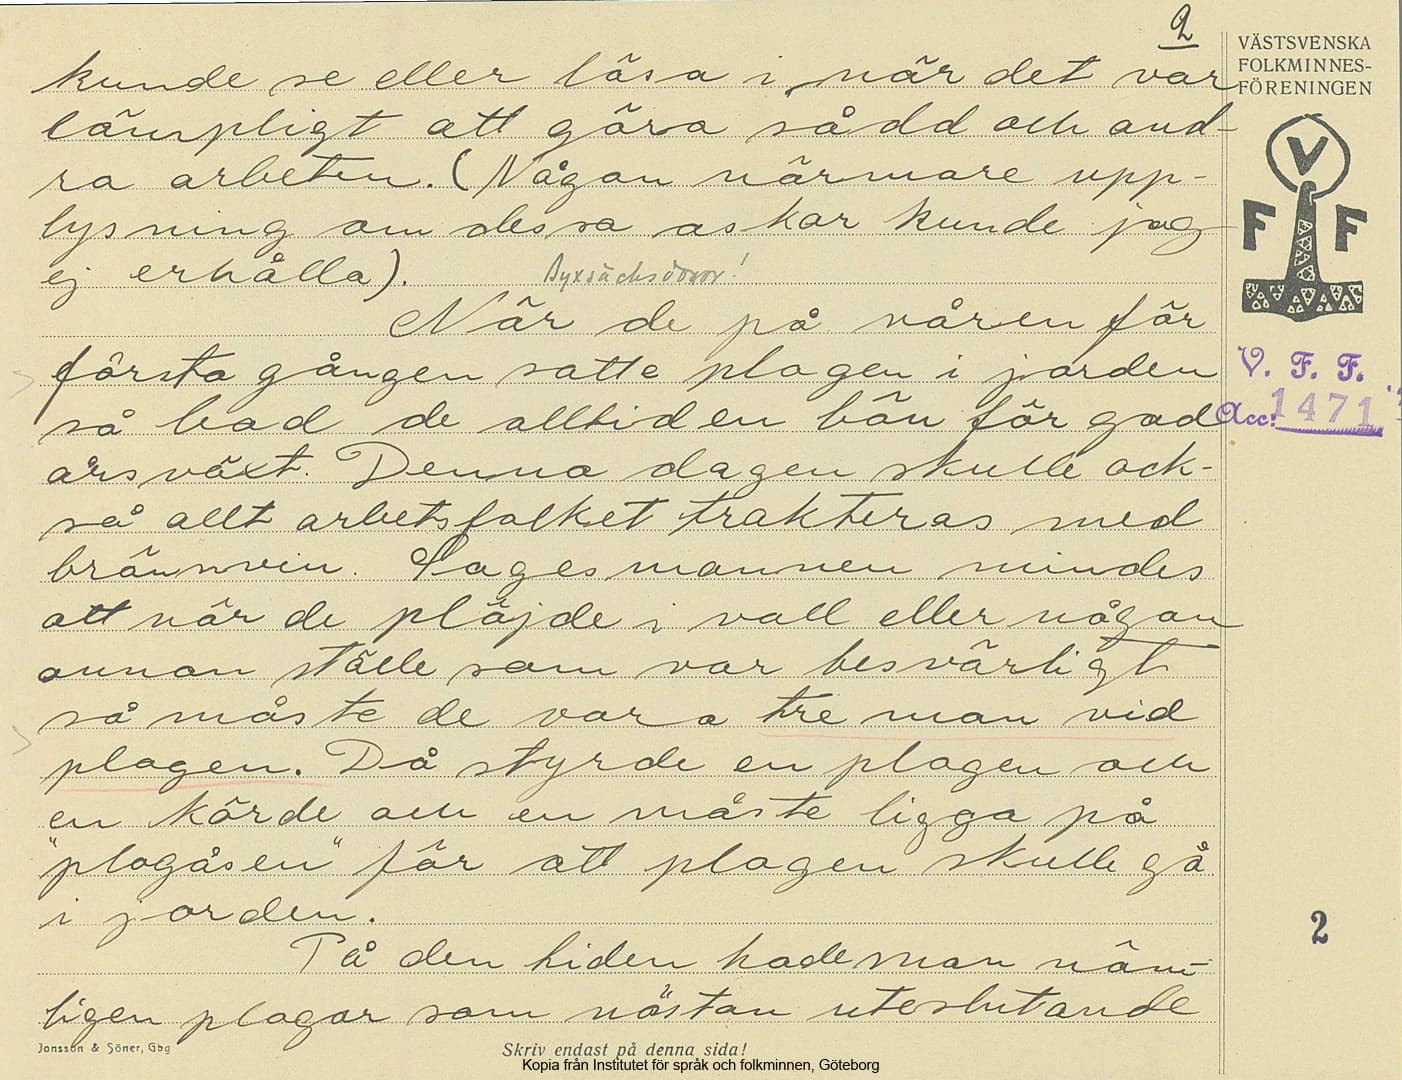 2
VÄSTSVENSKA
FOLKMINNES-
FÖRENINGEN
V
F F
V. F. F.
Acc: 1471
kunde se eller läsa i när det var
lämpligt att göra sådd och and-
ra arbeten. (Någon närmare upp-
lysning om dessa askar kunde jag
ej erhålla).
När de på våren för
första gången satte plogen i jorden
så bad de alltid en bön för god
årsväxt. Denna dagen skulle ock-
så allt arbetsfolket trakteras med
brännvin. Sagesmannen mindes
att när de plöjde i vall eller någon
annan ställe som var besvärligt
så måste de vara tre man vid
plogen. Då styrde en plogen och
en körde och en måste ligga på
"plogåsen" för att plogen skulle gå
i jorden.
På den tiden hade man näm-
ligen plogar som nästan uteslutande
2
Jonsson & Söner, Gbg
Skriv endast på denna sida!
Kopia från Institutet för språk och folkminnen, Göteborg